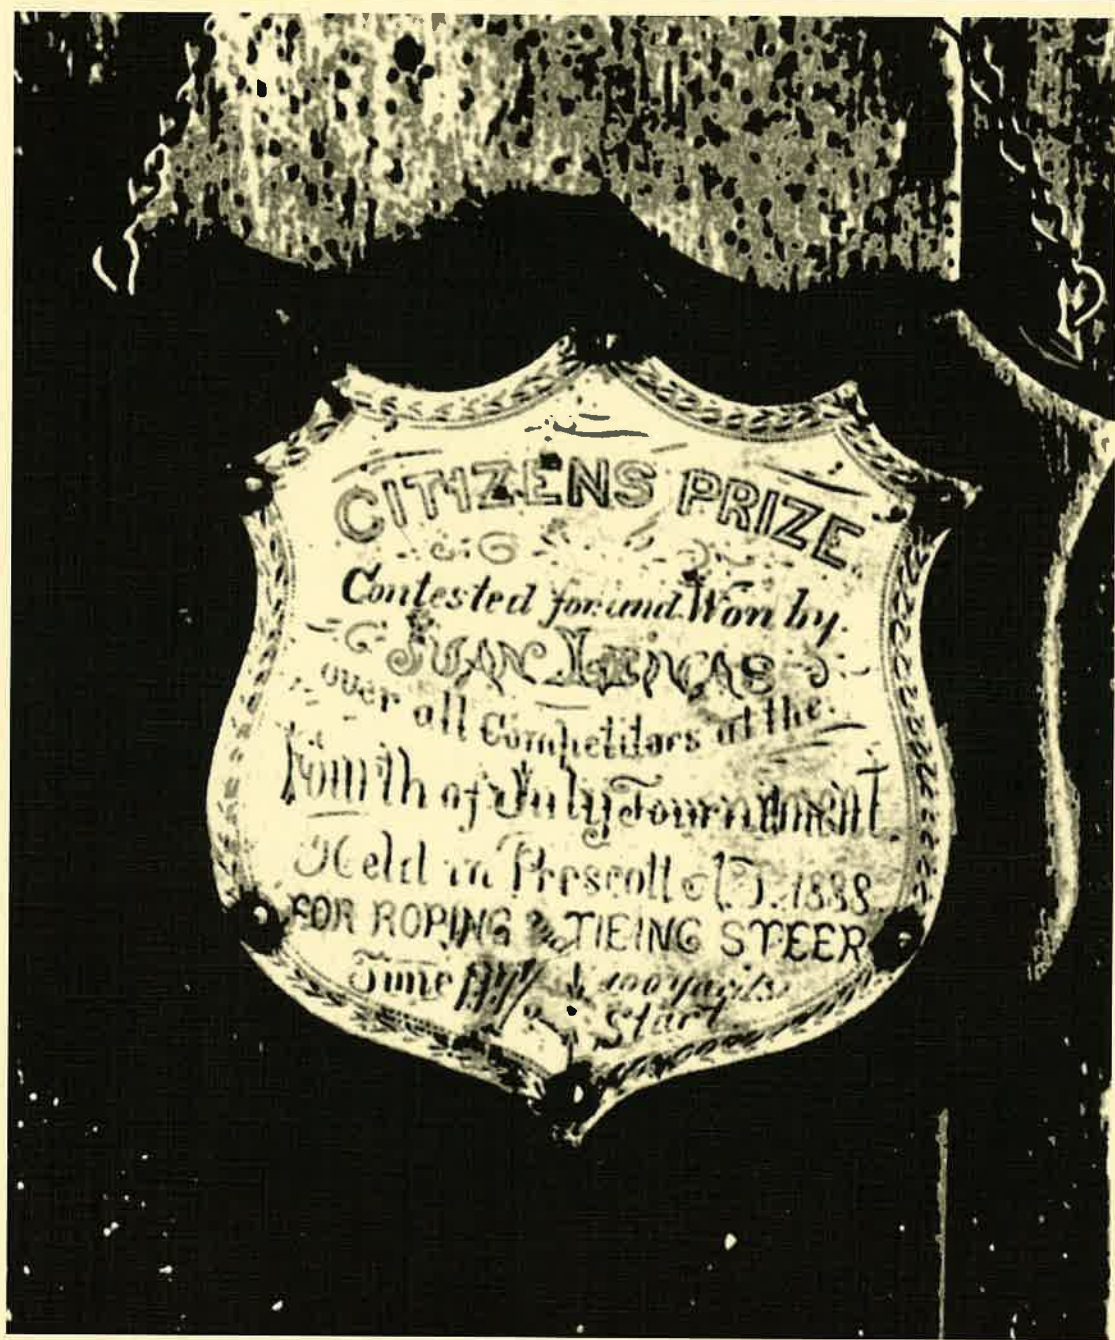 CITIZENS PRIZE
Contested for and Won by.
JUAN LEIVAS
over all Competitors at the.
Fourth of July Tournament
Held in Prescott A.T. 1888
FOR ROPING & TIEING STEER
Time 100 yards
Start